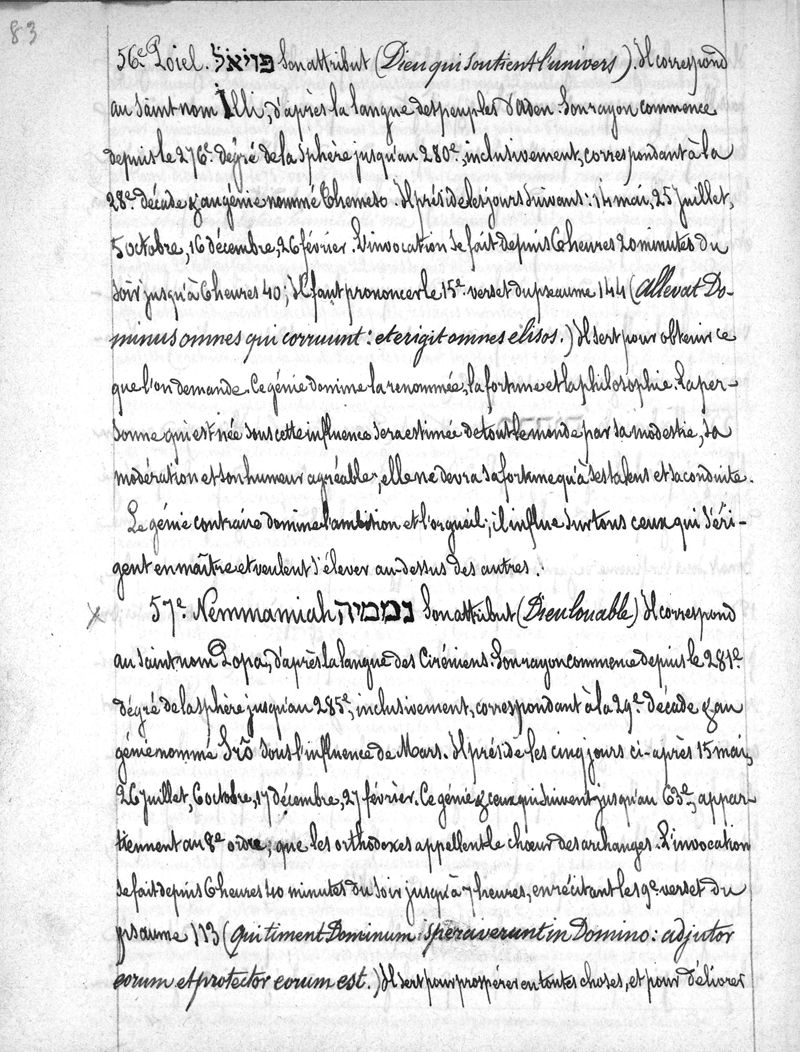 83
56e. Poiel. פויאל Son attribut (Dieu qui soutient l'univers). Il correspond
au saint nom Illi, d'après la langue des peuples d'aden. Son rayon commence
depuis le 276e. dégré de la sphère jusqu'au 280e., inclusivement, correspondant à la
28e. décade & au génie nommé Themeso. Il préside les jours suivant: 14 mai, 25 Juillet,
5 octobre, 16 décembre, 26 février. L'invocation se fait depuis 6 heures 20 minutes du
soir jusqu'à 6 heures 40; Il faut prononcer le 15e. verset du pseaume 144 (Allevat Do-
minus omnes qui corruunt: et erigit omnes elisos.) Il sert pour obtenir ce
que l'on demande. Ce génie domine la renommée, la fortune et la philosophie. La per-
sonne qui est née sous cette influence sera estimée de tout le monde par sa modestie, sa
modération et son humeur agréable; elle ne devra sa fortune qu'à ses talens et sa conduite.
Le génie contraire domine l'ambition et l'orgueil; il influe sur tous ceux qui s'éri-
gent en maître et veulent s'élever au-dessus des autres.
57e. Nemmamiah נממיה Son attribut (Dieu louable) Il correspond
au saint nom Popa, d'après la langue des Ciréniens. Son rayon commence depuis le 281e.
dégré de la sphère jusqu'au 285e., inclusivement, correspondant à la 29e. décade & au
génie nommé Srõ sous l'influence de Mars. Il préside les cinq jours ci-après 15 mai,
26 juillet, 6 octobre, 17 décembre, 27 février. Ce génie & ceux qui suivent jusqu'au 63e., appar-
tiennent au 8e. ordre, que les orthodoxes appellent le chœur des archanges. L'invocation
se fait depuis 6 heures 40 minutes du soir jusqu'à 7 heures, en récitant le 19e. verset du
psaume 113 (Qui timent Dominum speraverunt in Domino: adjutor
eorum et protector eorum est.) Il sert pour prospérer en toutes choses, et pour délivrer